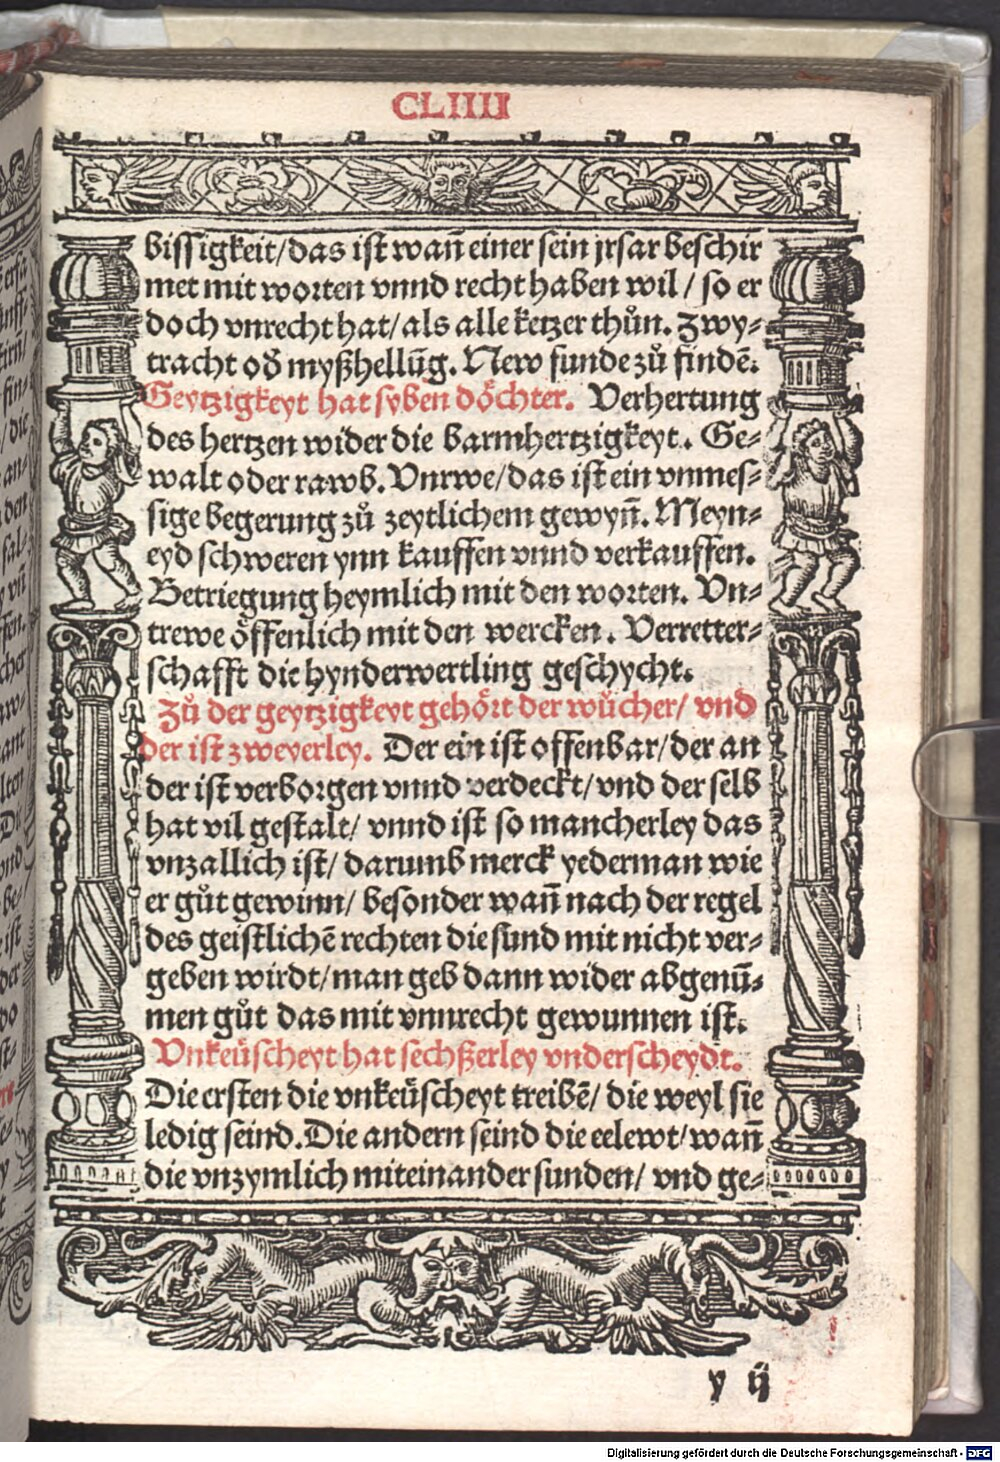 CLIIII
bissigkeit/das ist wañ einer sein jrsar beschir
met mit worten vnnd recht haben wil / so er
doch vnrecht hat/als alle ketzer thůn. Zwy-
tracht oď myßhellũg. New funde zů findẽ.
Geytzigkeyt hat syben döchter. Verhertung
des hertzen wider die barmhertzigkeyt. Ge-
walt oder rawb. Vnrwe/das ist ein vnmes-
sige begerung zů zeytlichem gewyñ. Meyn-
eyd schweren ynn kauffen vnnd verkauffen.
Betriegung heymlich mit den worten. Vn-
trewe öffenlich mit den wercken. Verretter-
schafft die hynderwertling geschycht.
Zů der geytzigkeyt gehört der wůcher/ vnd
der ist zweyerley. Der ein ist offenbar/der an
der ist verborgen vnnd verdeckt/vnd der selb
hat vil gestalt/ vnnd ist so mancherley das
vnzallich ist/ darumb merck yederman wie
er gůt gewinn/ besonder wañ nach der regel
des geistlichẽ rechten die sund mit nicht ver-
geben wirdt/man geb dann wider abgenũ-
men gůt das mit vnnrecht gewunnen ist.
Vnkeüscheyt hat sechßerley vnderscheydt.
Die ersten die vnkeüscheyt treibẽ/ die weyl sie
ledig seind. Die andern seind die eelewt/wañ
die vnzymlich miteinander sunden/ vnd ge-
y ij
Digitalisierung gefördert durch die Deutsche Forschungsgemeinschaft - DFG